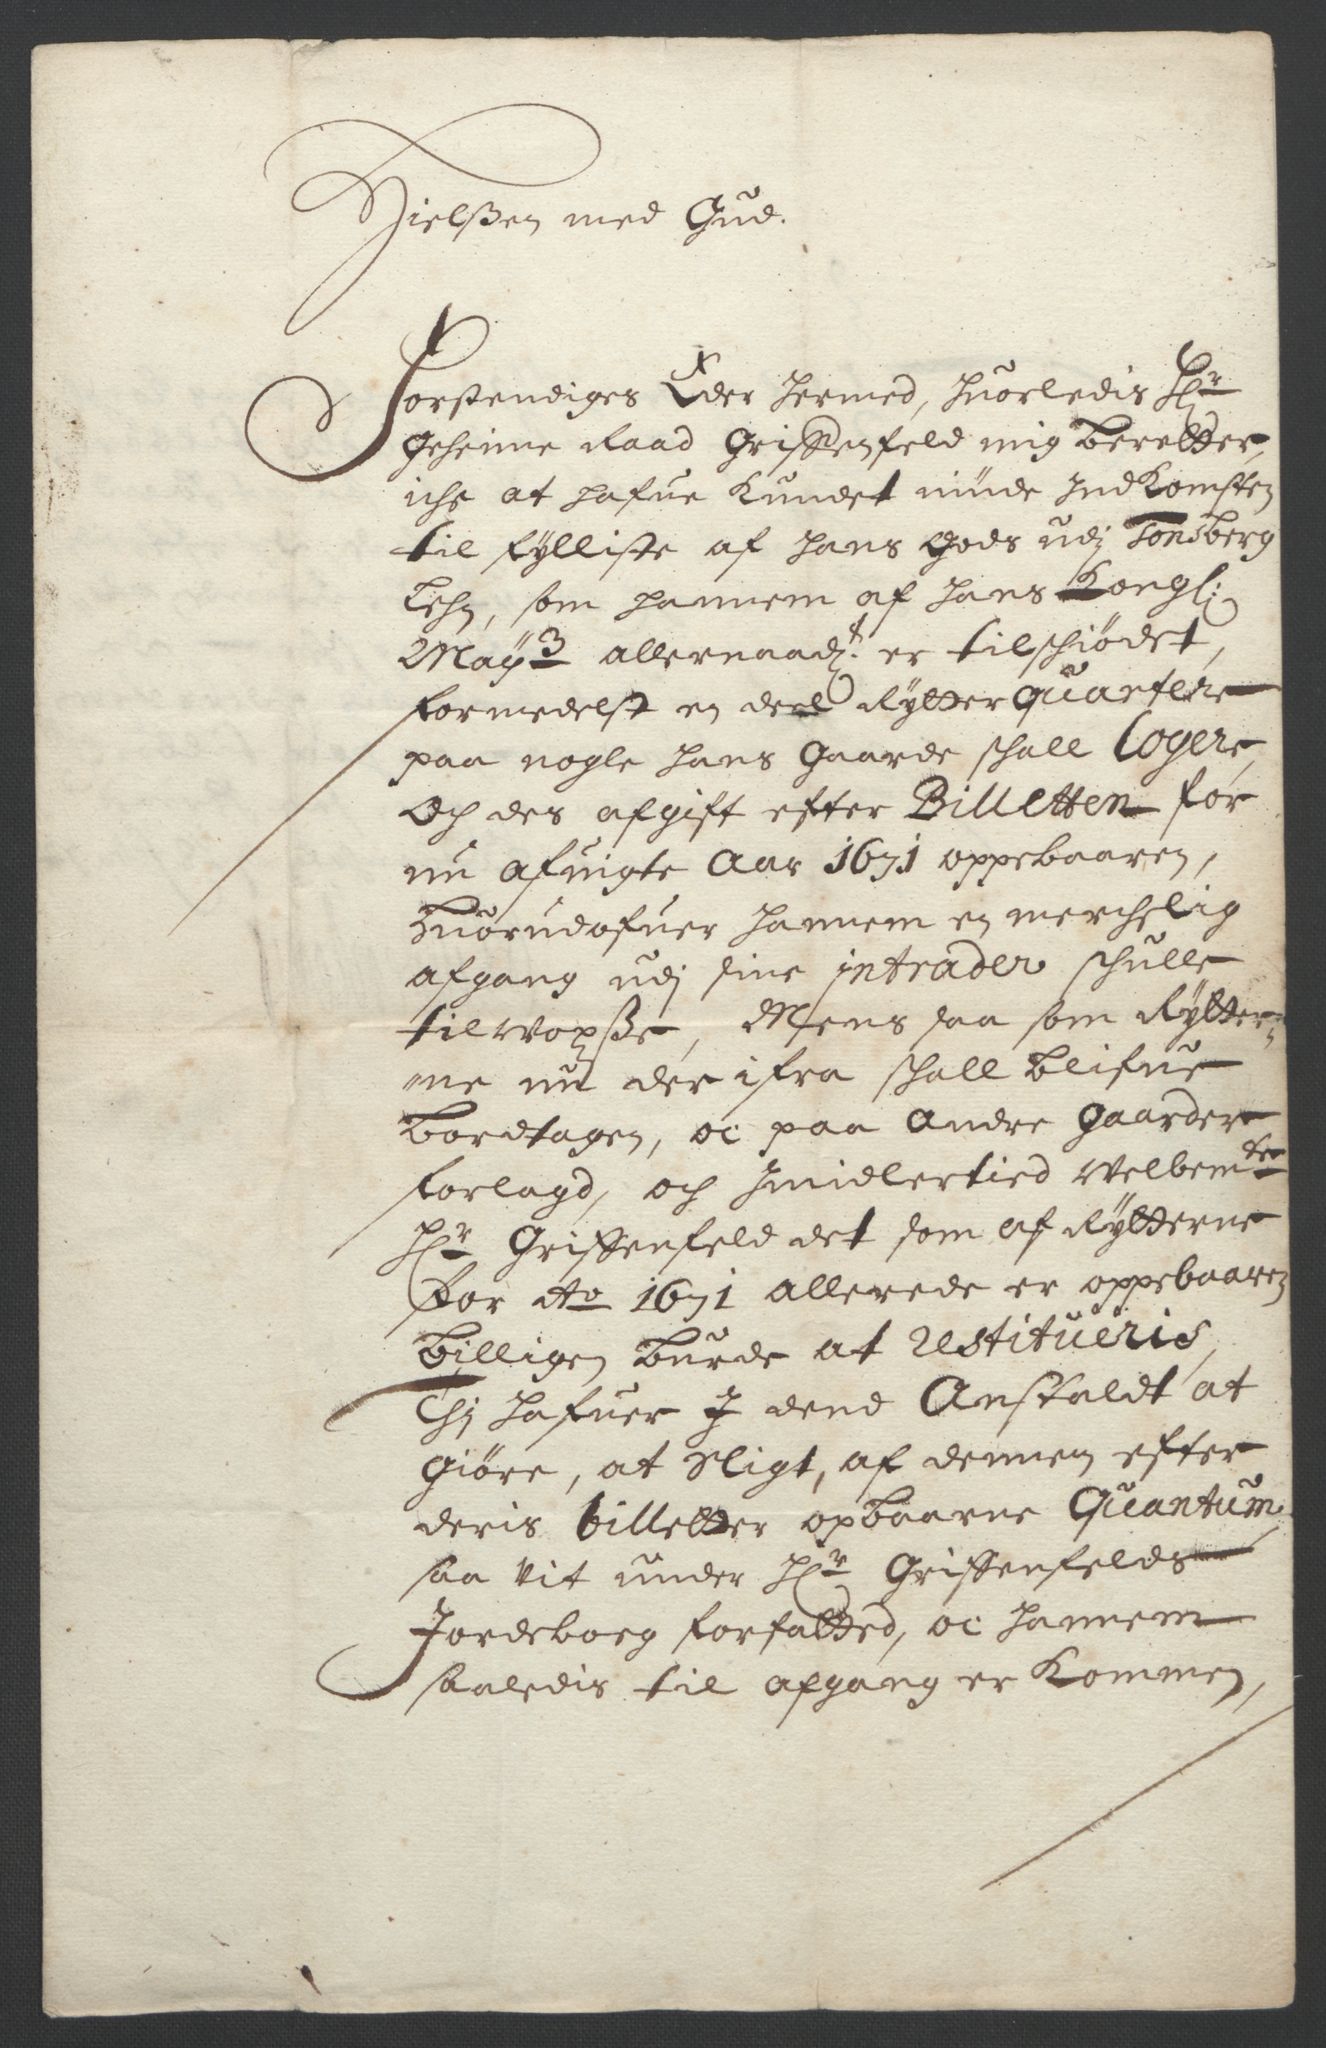 Hielssen med Gud.
Forstendiges Eder hermed, huorledis Hr
Geheime Raad Griffenfeld mig beretter,
iche at hafue kundet niude Indkomsten
til fylliste af hans Gods udj Tonsberg
Lehn, som hannem af hans Kongl:
Mayts allernaadt: er tilschiødet,
formedelst en deel Rytter quarteere
paa nogle hans Gaarde schall logere,
Och des afgift efter Billetten for
nu afuigte Aar 1671 oppebaaren,
Huorudofuer hannem en merchelig
afgang udj sine intrader schulle
tilvoxsse, Mens saa som Rytter-
ne nu der ifra schall blifue
bordtagen, oc paa andre Gaarder
forlagd, och Imidlertied Velbemte
Hr Griffenfeld det som af Rytterne
for Ao 1671 allerede er oppebaaren
billigen burde at restitueris,
Thj hafuer I dend Anstaldt at
giøre, at Sligt, af dennem efter
deris billetter opbaarne Quantum
saa vit under Hr Griffenfelds
Jordeboeg forfatted, oc hannem
saaledis til afgang er kommen,